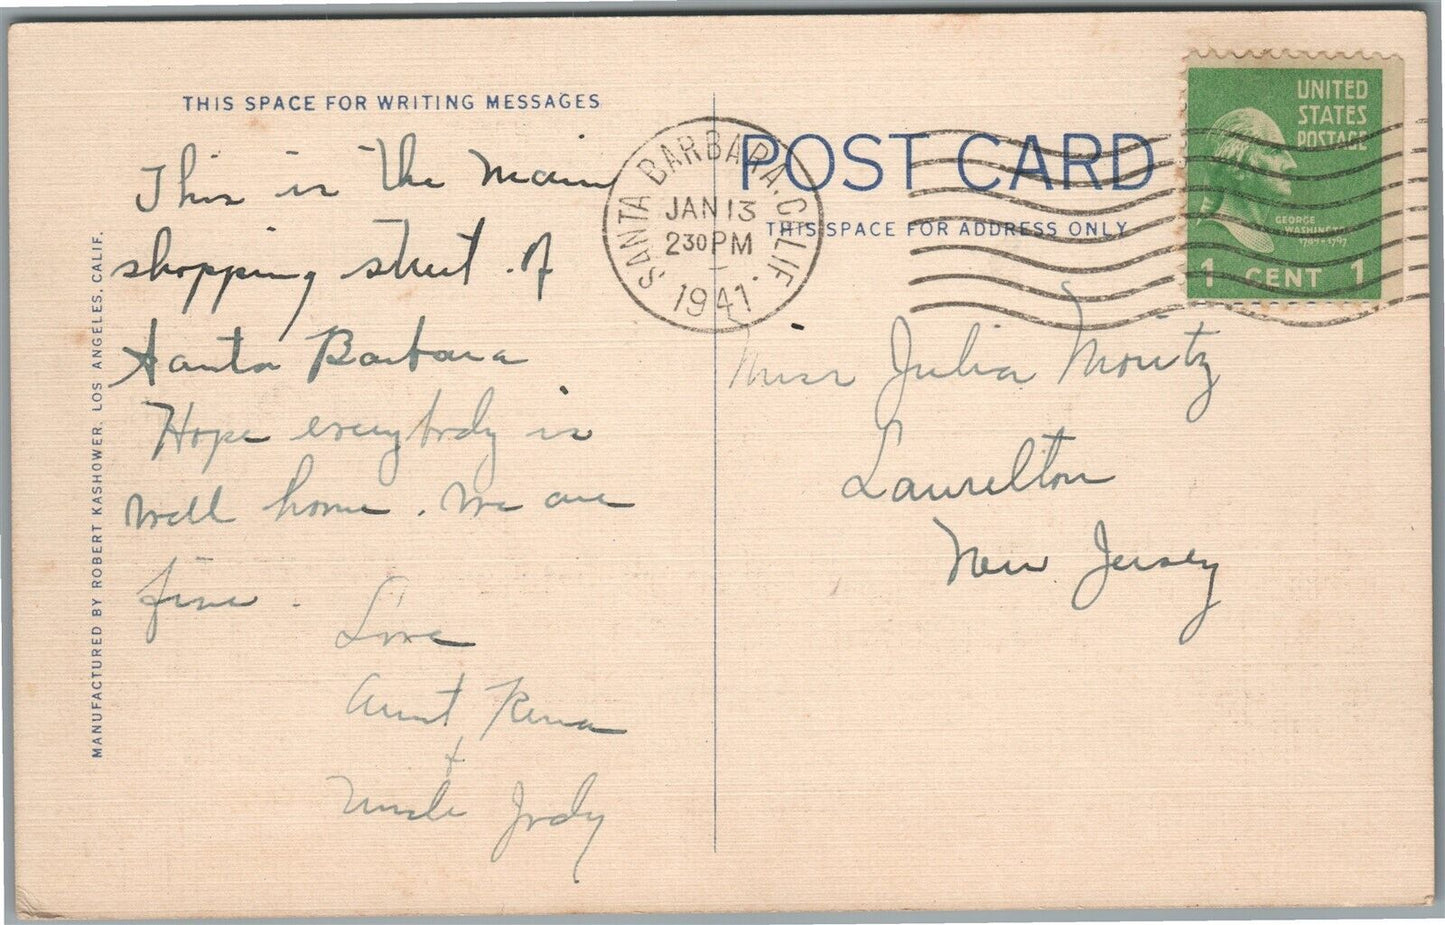 THIS SPACE FOR WRITING MESSAGES
This is the main
shopping street of
Santa Barbara
Hope everybody is
well home. We are
fine.
Love
Aunt Rena
+
Uncle Jody
MANUFACTURED BY ROBERT KASHOWER, LOS ANGELES, CALIF.
SANTA BARBARA, CALIF.
JAN 13
230PM
1941
POST CARD
THIS SPACE FOR ADDRESS ONLY
UNITED
STATES
POSTAGE
GEORGE
WASHINGTON
1789-1797
1 CENT 1
Miss Julia Moritz
Laurelton
New Jersey